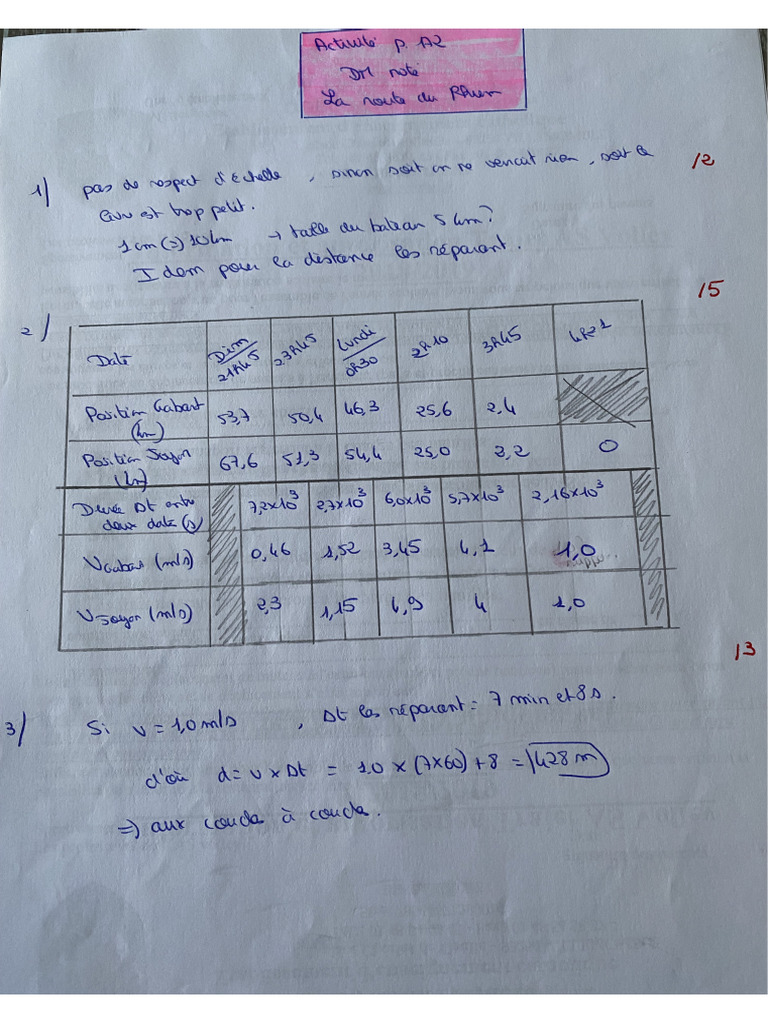 Activité p. A2
DM noté
La route du Rhum
1) pas de respect d'échelle, sinon soit on ne verrait rien, soit le /2
livre est trop petit.
1 cm (=) 10 km → taille du bateau 5 km?
Idem pour la distance les séparant.
/5
2/
Date Dim 21h45 23h45 Lundi 0h30 2h10 3h45 4h21
Position Gabart (km) 53,7 50,4 46,3 25,6 2,4
Position Soyon (km) 67,6 51,3 54,4 25,0 2,2 0
Durée Dt entre deux date (s) 7,2x10³ 2,7x10³ 6,0x10³ 5,7x10³ 2,16x10³
V (m/s) 0,46 1,52 3,45 4,1 1,0
V Soyon (m/s) 2,3 1,15 4,9 4 1,0
/3
3/ Si v = 1,0 m/s, Dt les séparant = 7 min et 8 s.
d'où d = v x Dt = 1.0 x (7x60) + 8 = 428 m
=) aux coude à coude.